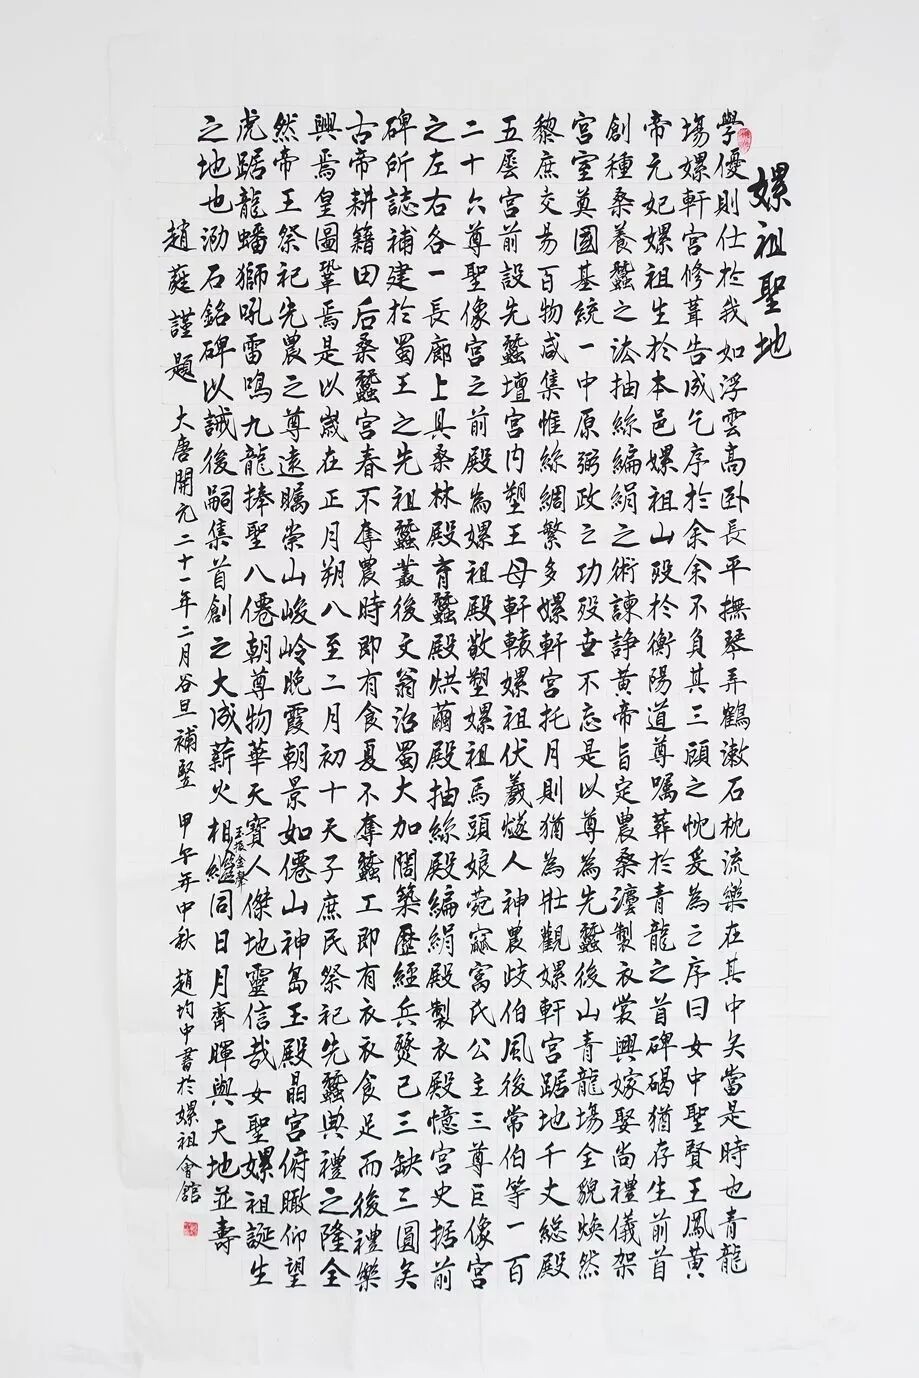 嫘祖聖地
學優則仕於我如浮雲高卧長平撫琴弄鶴漱石枕流樂在其中矣當是時也青龍
塲嫘軒宮修葺告成乞序於余余不負其三顧之忱爰為之序曰女中聖賢王鳳黃
帝元妃嫘祖生於本邑嫘祖山歿於衡陽道尊囑葬於青龍之首碑碣猶存生前首
創種桑養蠶之法抽絲編絹之術諫諍黃帝旨定農桑灋製衣裳興嫁娶尚禮儀架
宮室奠國基統一中原弼政之功歿世不忘是以尊為先蠶後山青龍塲全貌煥然
黎庶交易百物咸集惟絲綢繁多嫘軒宮托月則猶為壯觀嫘軒宮踞地千丈總殿
五層宮前設先蠶壇宮內塑王母軒轅嫘祖伏羲燧人神農歧伯風後常伯等一百
二十六尊聖像宮之前殿為嫘祖殿敬塑嫘祖馬頭娘菀窳寓氏公主三尊巨像宮
之左右各一長廊上具桑林殿育蠶殿烘繭殿抽絲殿編絹殿製衣殿憶宮史据前
碑所誌補建於蜀王之先祖蠶叢後文翁治蜀大加闊築歷經兵燹已三缺三圓矣
古帝耕籍田后桑蠶宮春不奪農時即有食夏不奪蠶工即有衣衣食足而後禮樂
興焉皇圖鞏焉是以嵗在正月朔八至二月初十天子庶民祭祀先蠶典禮之隆全
然帝王祭祀先農之尊遠矚崇山峻岭晚霞朝景如僊山神島玉殿晶宮俯瞰仰望
虎踞龍蟠獅吼雷鳴九龍捧聖八僊朝尊物華天寶人傑地靈信哉女聖嫘祖誕生
之地也泐石銘碑以誡後嗣集首創之大成薪火相繼同日月齊暉與天地並壽
玉振金聲
趙蕤謹題 大唐開元二十一年二月谷旦補竪 甲午年中秋 趙均中書於嫘祖會館